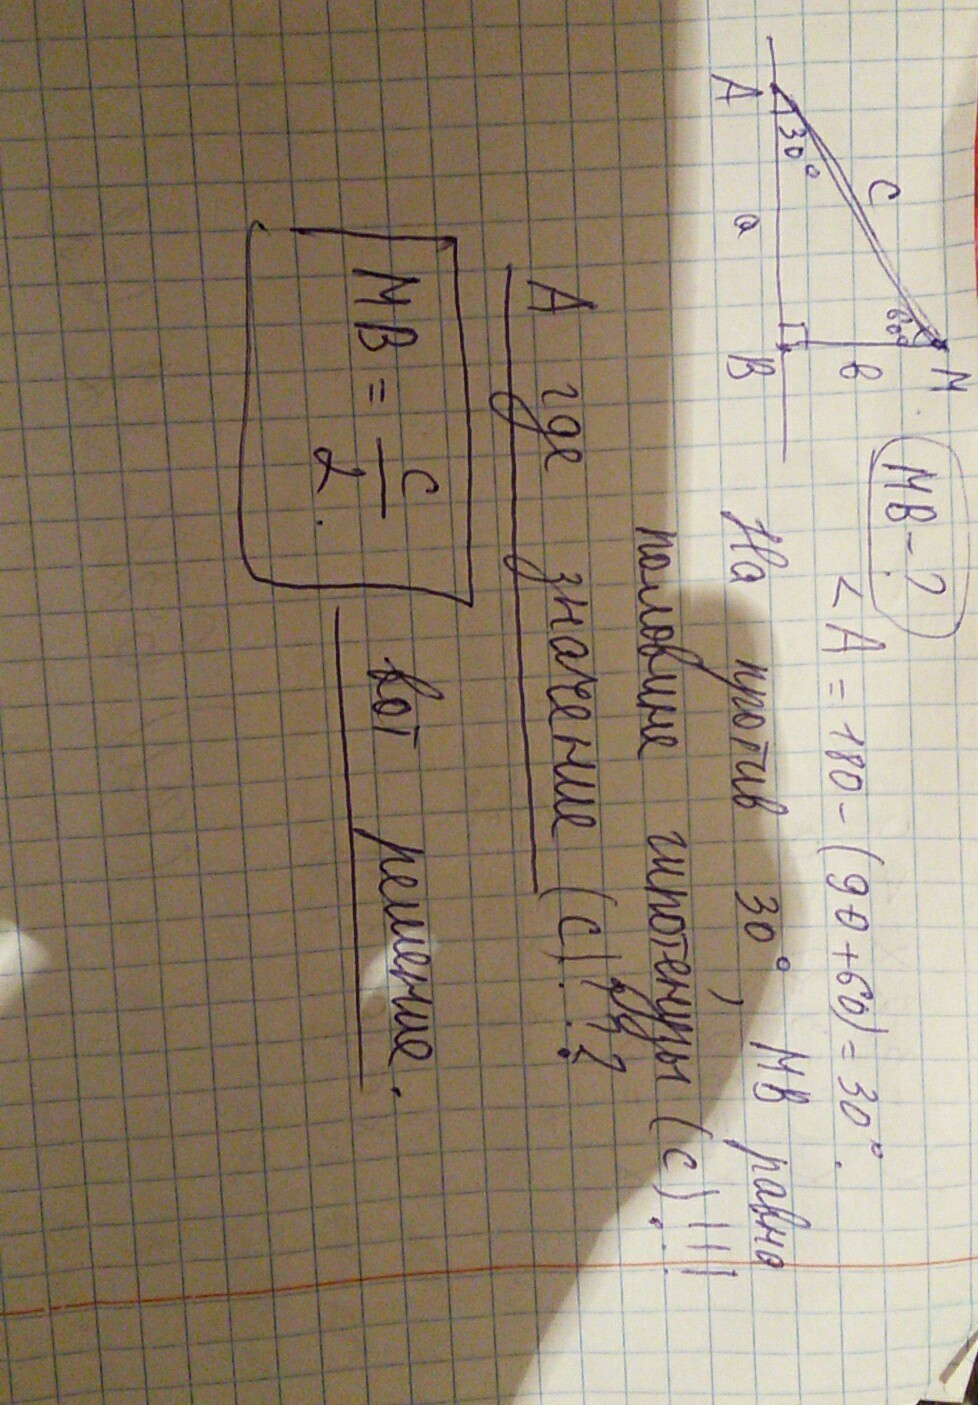 M
C
60°
в
30°
A
a
B
MB - ?
< A = 180 - (90 + 60) = 30°.
На против 30°, MB равно
половине гипотенузы (c). !!!
А где значение (c). ?
MB = c/2.
вот решение.